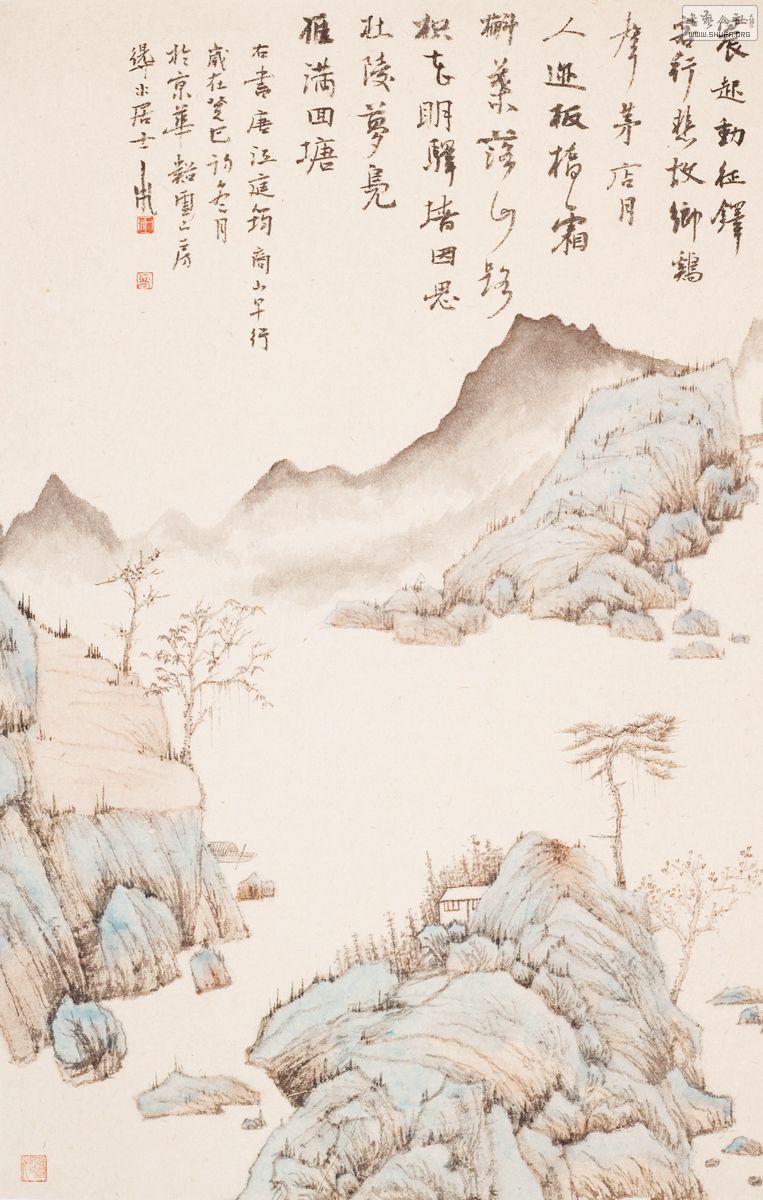 晨起動征鐸
客行悲故鄉鷄
聲茅店月
人迹板橋霜
槲葉落山路
枳花明驛墻因思
杜陵夢鳧
雁滿回塘
右書唐江庭筠商山早行
歲在癸巳初冬月
於京華谿雪山房
水居士
WWW.SHUFA.ORG